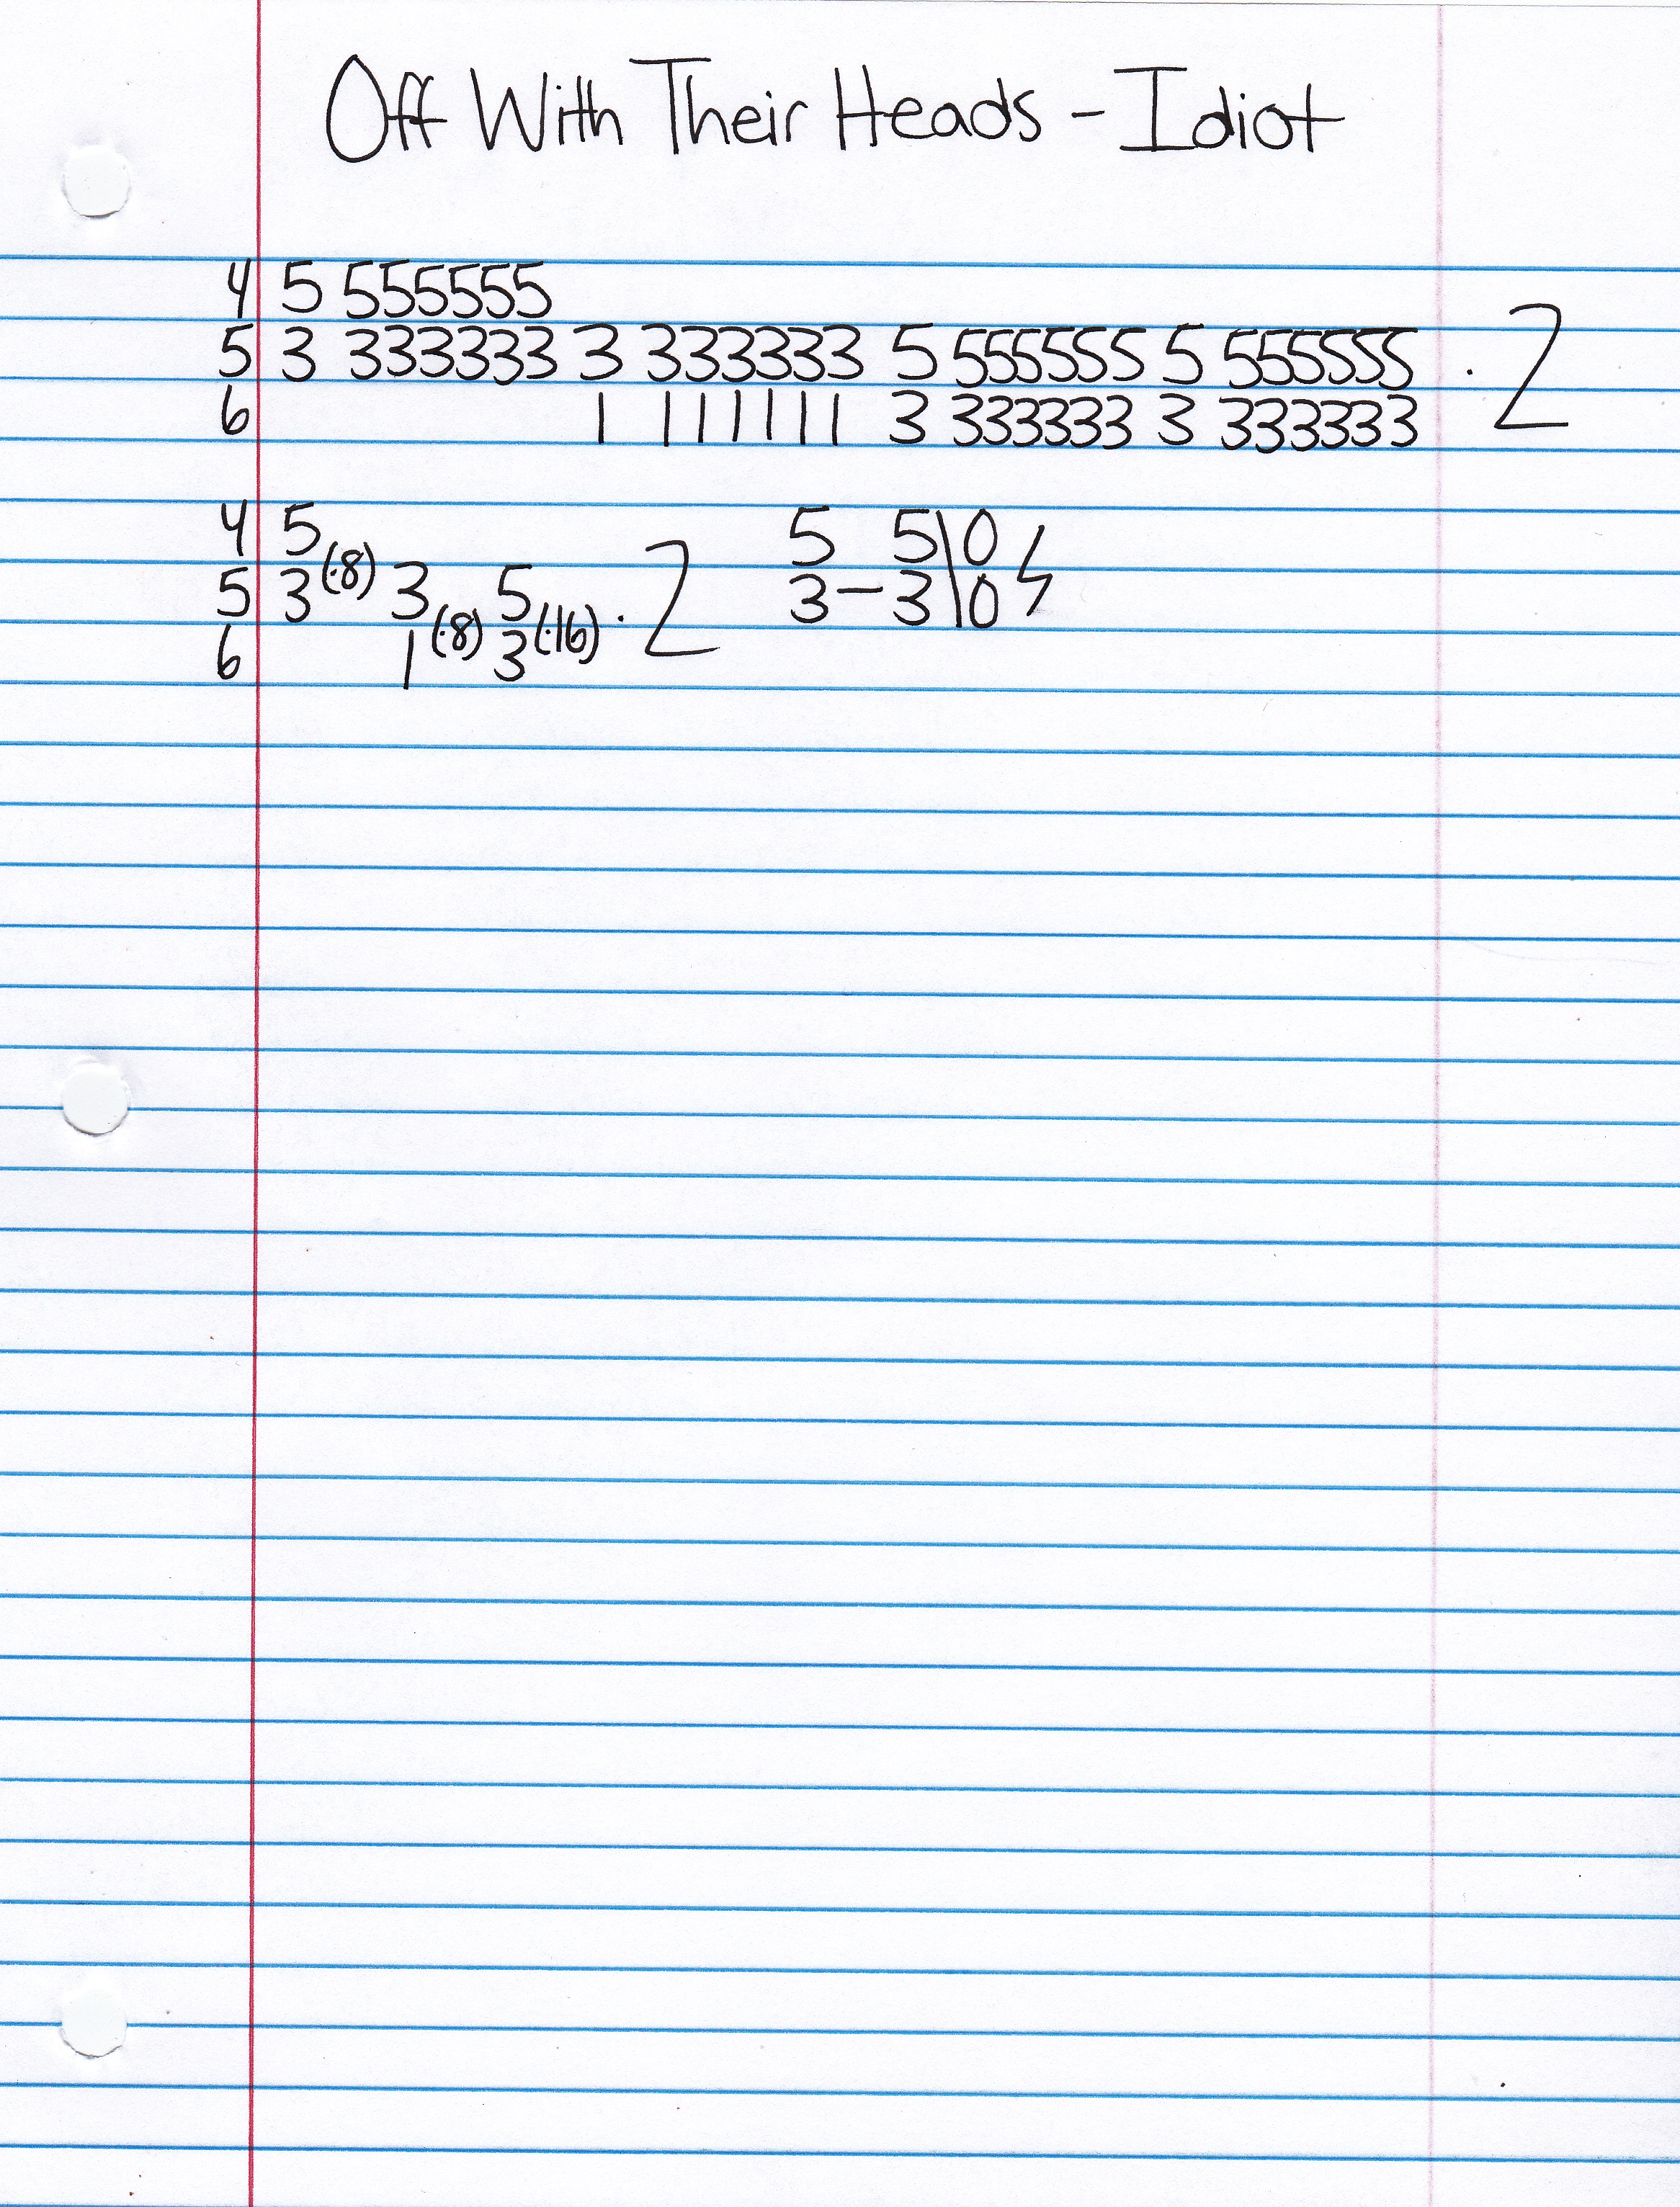 Off With Their Heads - Idiot
4 5 555555
5 3 333333 3 333333 5 555555 5 555555 · 2
6 1 111111 3 333333 3 333333
4 5 5 5\0
5 3 (·8) 3 5 · 2 3-3\0
6 1 (·8) 3 (·16)